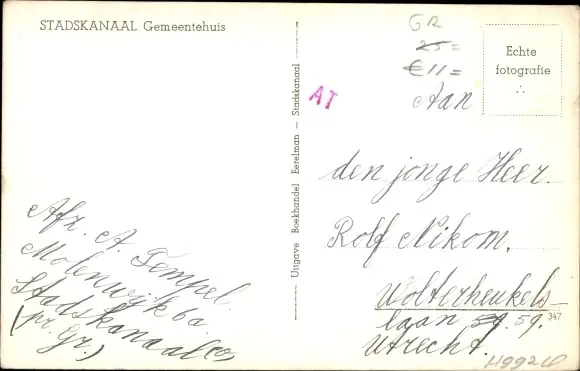 STADSKANAAL Gemeentehuis
GR
25=
€ 11=
Echte
fotografie
AT
Aan
den jonge Heer.
Rolf Nikom.
Wolterheukels-
laan 59. 59.
Utrecht.
Afz. A. Tempel.
Molenwijk 6a.
Stadskanaal(o)
(pr. Gr.)
Uitgave Boekhandel Eerelman — Stadskanaal
347